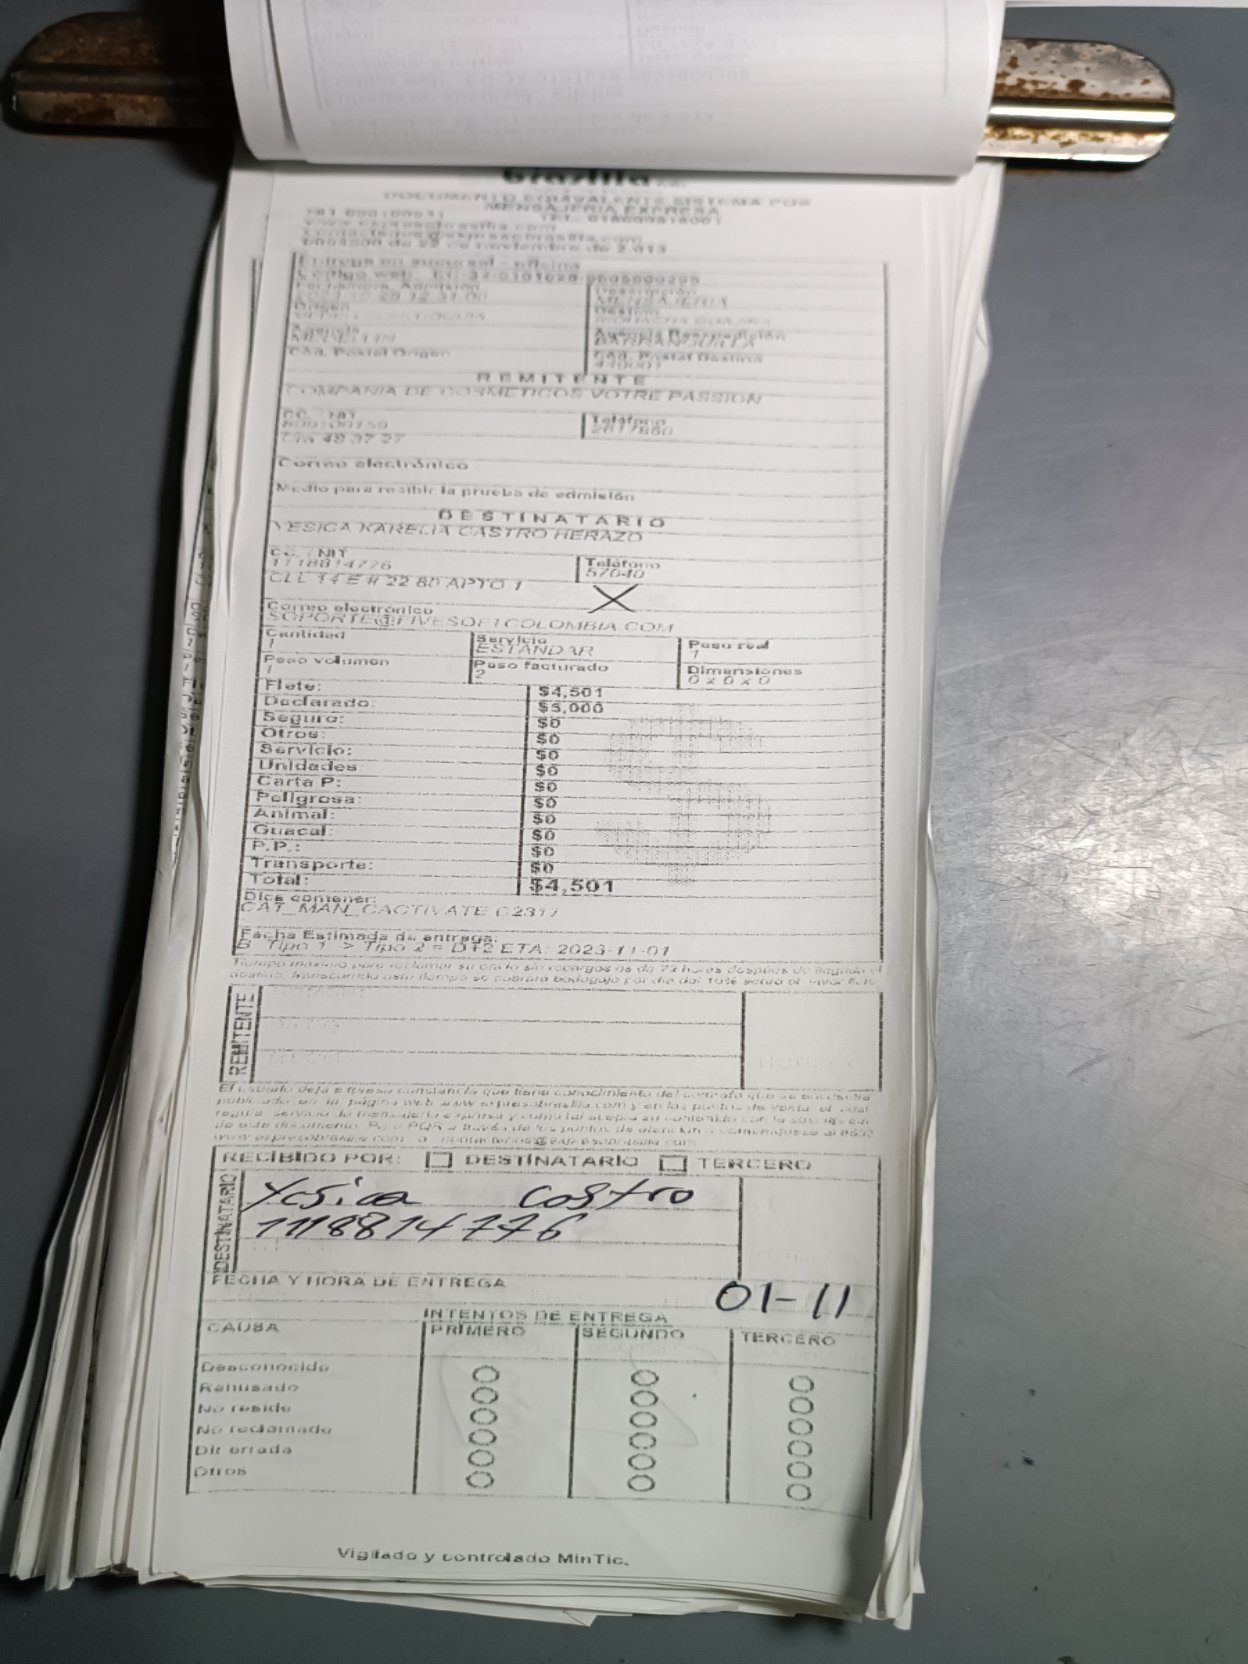 brasilia
DOCUMENTO EQUIVALENTE SISTEMA POS
MENSAJERIA EXPRESA
NIT 890100531 TEL. 018000518001
www.expresobrasilia.com
contactenos@expresobrasilia.com
0004500 de 22 de noviembre de 2.013
Entrega en sucursal - oficina
Código web: EC-33-0101028-0005600205
Fecha/Hora Admisión Descripción
2023-10-28 12:31:00 MENSAJERIA
Origen Destino
ANTIOQUIA RIOHACHA GUAJIRA
Agencia Agencia Reexpedición
MEDELLIN BARRANQUILLA
Cód. Postal Origen Cód. Postal Destino
440001
REMITENTE
COMPANIA DE COSMETICOS VOTRE PASSION
CC. / NIT Teléfono
2617860
Cra 49 37 27
Correo electrónico
Medio para recibir la prueba de admisión
DESTINATARIO
YESICA KARELIA CASTRO HERAZO
CC. / NIT Teléfono
1118814776 57040
CLL 14 E # 22 80 APTO 1
X
Correo electrónico
SOPORTE@FIVESOFTCOLOMBIA.COM
Cantidad Servicio Peso real
1 ESTANDAR 1
Peso volumen Peso facturado Dimensiones
1 2 0 x 0 x 0
Flete: $4,501
Declarado: $5,000
Seguro: $0
Otros: $0
Servicio: $0
Unidades $0
Carta P: $0
Peligrosa: $0
Animal: $0
Guacal: $0
P.P.: $0
Transporte: $0
Total: $4,501
Dice contener:
CAT_MAN_CACTIVATE C2317
Fecha Estimada de entrega:
B Tipo 1 -> Tipo 2 = D+2 ETA: 2023-11-01
REMITENTE
El usuario deja expresa constancia que tiene conocimiento del contrato que se encuentra
publicado en la página web www.expresobrasilia.com y en los puntos de venta, el cual
regula servicio de mensajería expresa y como tal acepta su contenido con la suscripción
de este documento. Para PQR a través de los puntos de atención
www.expresobrasilia.com o contactenos@expresobrasilia.com
RECIBIDO POR: DESTINATARIO TERCERO
DESTINATARIO
Yesica Castro
1118814776
FECHA Y HORA DE ENTREGA
01-11
INTENTOS DE ENTREGA
CAUSA PRIMERO SEGUNDO TERCERO
Desconocido
Rehusado
No reside
No reclamado
Dir errada
Otros
Vigilado y controlado MinTic.